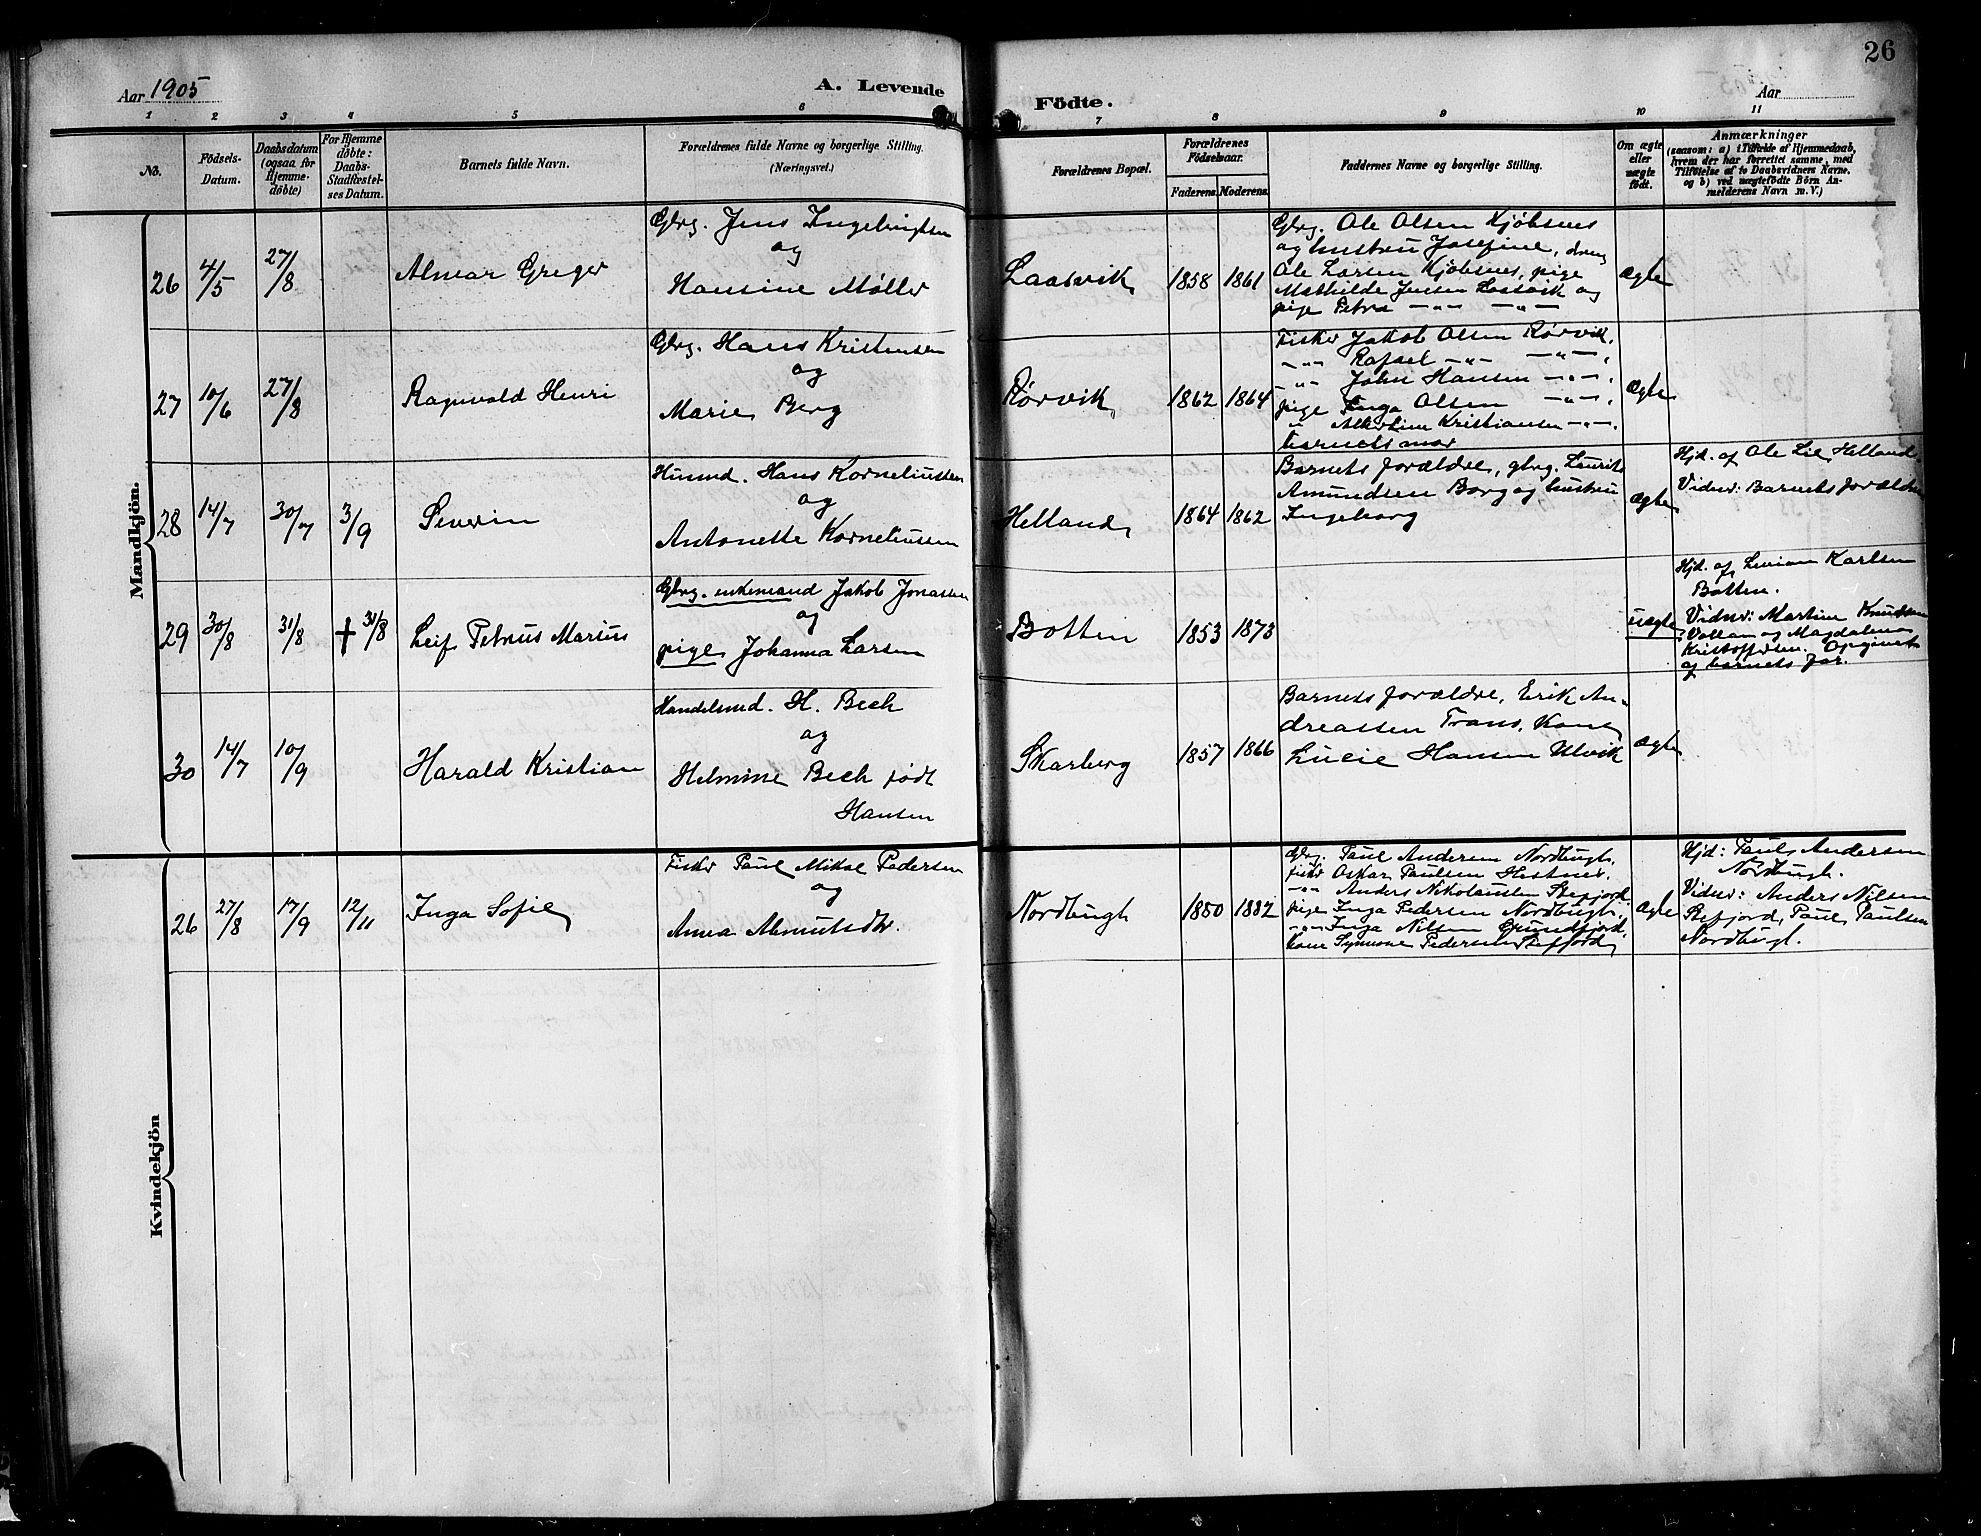 26
Aar 1905
A. Levende
Födte.
Aar
1 2 3 4 5 6 7 8 9 10 11
No.
Födsels-
Datum.
Daabsdatum
(ogsaa for
Hjemme-
døbte)
For Hjemme
døbte:
Daabs-
Stadfæstel-
ses Datum.
Barnets fulde Navn.
Forældrenes fulde Navne og borgerlige Stilling.
(Næringsvei.)
Forældrenes Bopæl.
Forældrenes
Födselsaar.
Faderens. Moderens.
Faddernes Navne og borgerlige Stilling.
Om ægte
eller
uægte
født.
Anmærkninger
(saasom: a) i Tilfælde af Hjemmedaab,
hvem der har forrettet samme, med
Tilföielse af to Daabsvidners Navne,
og b) ved uægtefödte Börn An-
melderens Navn m. V.)
Mandkjön.
26 4/5 27/8
Almar Greger
Gbrg. Jens Ingebrigtsen
og
Hansine Møller
Laasvik
1858 1861
Gbrg. Ole Olsen Kjøbsnes
og hustru Josefine, dreng
Ole Larsen Kjøbsnes, pige
Mathilde Jensen Laasvik og
pige Petra — „ — — „ —
ægte
27 10/6 27/8
Ragnvald Henri
Gbrg. Hans Kristensen
og
Marie Berg
Rørvik
1862 1864
Fisker Jakob Olsen Rørvik,
— „ — Rafael — „ — — „ —,
— „ — John Hansen — „ —,
pige Inga Olsen — „ —,
„ Albertine Kristiansen — „ —.
barnets mor
ægte
28 14/7 30/7 3/9
Severin
Husmd. Hans Korneliussen
og
Antonette Korneliussen
Helland
1864 1862
Barnets forældre, gbrg. Laurits
Amundsen Borg og hustru
Ingeborg
ægte
Hjd. af Ole Lie, Helland
Vidner: Barnets forældre
29 30/8 31/8 † 31/8
Leif Petrus Marius
Gbrg. enkemand Jakob Jonassen
og
pige Johanna Larsen
Botten
1853 1873
uægte
Hjd. af Karlsen
Botten.
Vidner: Martine Knudsen
og Magdalena
Kristoffersen. Opgivet
af barnets far.
30 14/7 10/9
Harald Kristian
Handelsmd. H. Bech
og
Helmine Bech født
Hansen
Skarberg
1857 1866
Barnets forældre, Erik An-
dreassen Tranø, Kone
Lucie Hansen Ulvik
ægte
Kvindekjön
26 27/8 17/9 12/11
Inga Sofie
Fisker Paul Mikal Pedersen
og
Anna Almutsdtr.
Nordbugt
1850 1882
Gbrg. Paul Andersen Nordbugt,
fisker Oskar Paulsen Hestnes,
— „ — Anders Nikolaisen Stefjord,
pige Inga Pedersen Nordbugt,
— „ — Inga Nilsen Grundfjord,
Kone Pedersen Stefjord
ægte
Hjd: Paul Andersen
Nordbugt.
Vidner: Anders Nilsen
Stefjord, Paul Paulsen
Nordbugt.